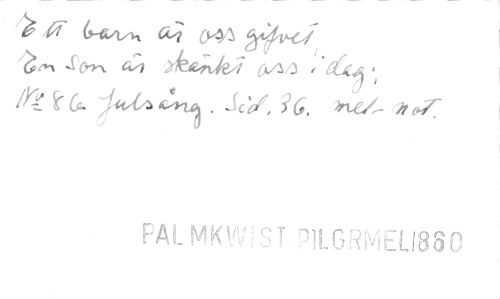 Ett barn är oss gifvet,
En Son är skänkt oss i dag;
No 86 Julsång. Sid. 36. mel- not.
PALMKWIST PILGRMEL1860